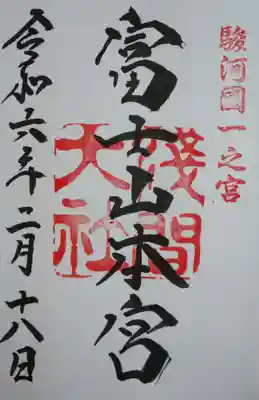 駿河国一之宮
富士山本宮
浅間
大社
令和六年二月十八日